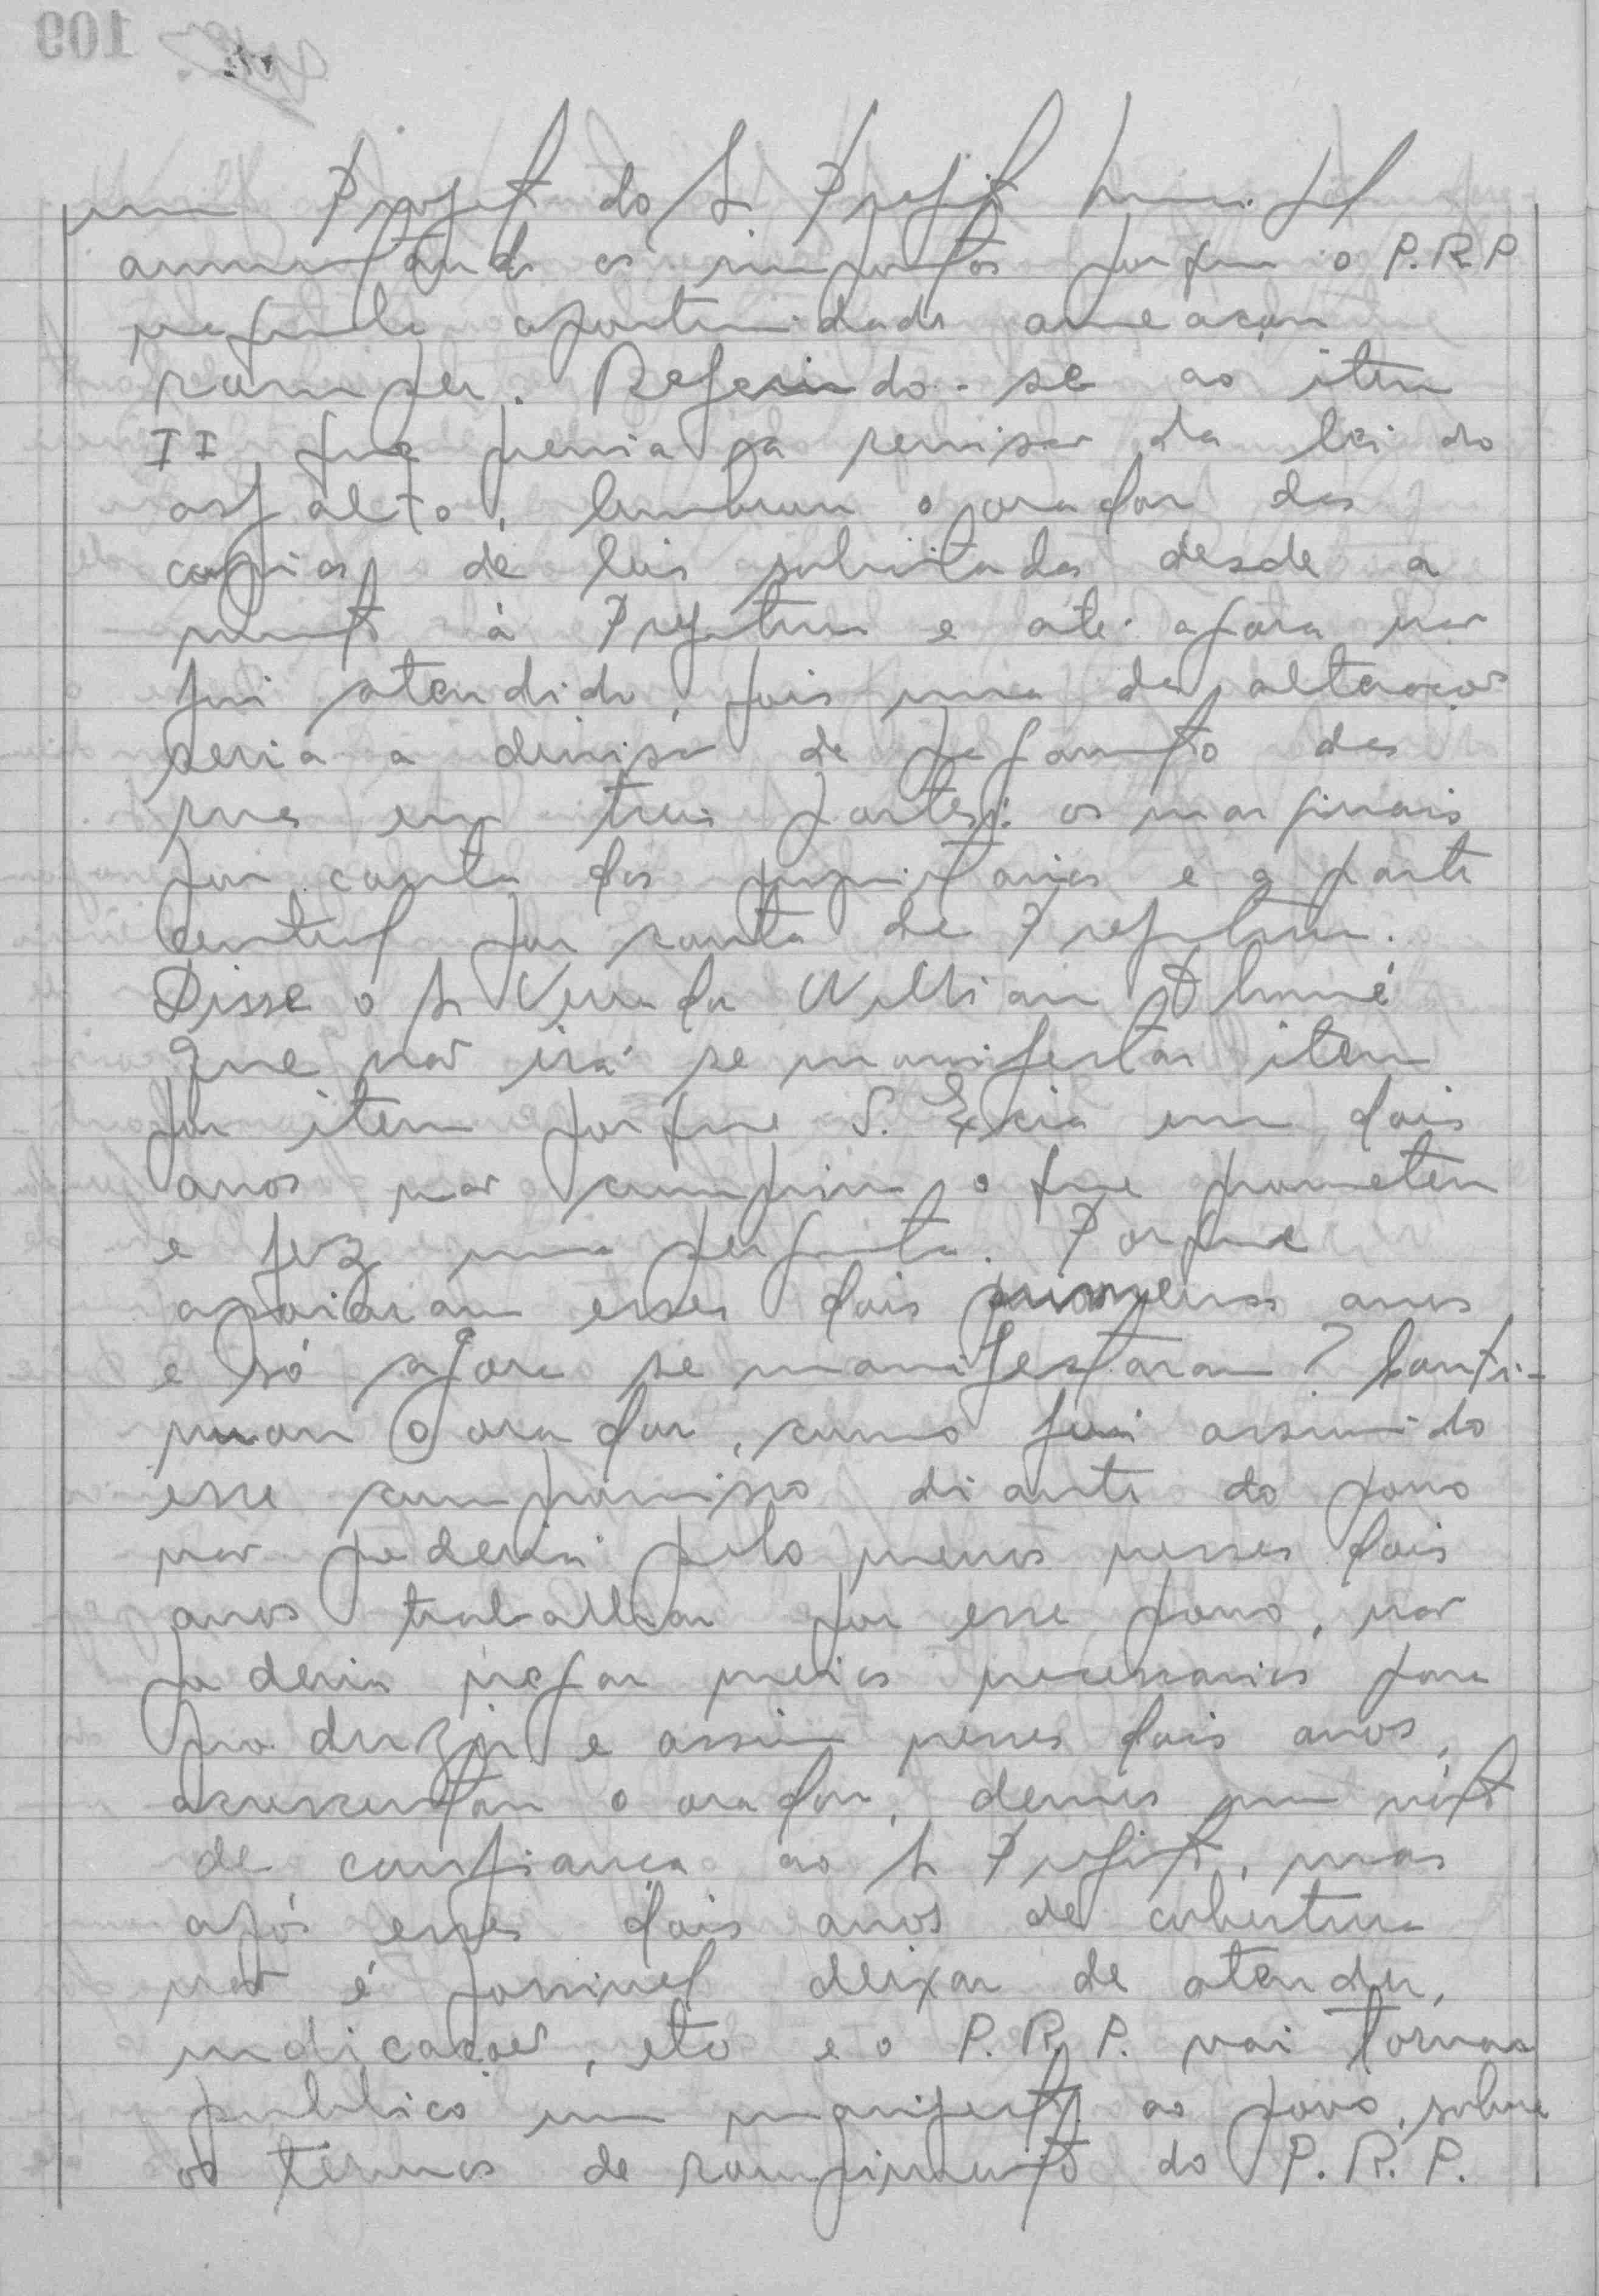 um Projeto do Sr Prefeito Municipal
aumentando os impostos porque o P.R.P
naquela oportunidade ameaçou
romper. Referindo-se ao item
II que previa a revisão da lei do
asfalto, lembrou o orador das
copias de leis solicitadas desde a
muito à Prefeitura e até agora não
foi atendido, pois uma das alterações
seria a divisão de pagamento das
ruas em treis partes: os marginais
por conta dos proprietarios e a parte
central por conta da Prefeitura.
Disse o Sr Vereador Willian
que não irá se manifestar item
por item porque S. Excia em dois
anos não cumpriu o que prometeu
e fez uma pergunta. Porque
apoiaram esses dois primeiros anos
e só agora se manifestaram? Conti-
nuou o orador, como foi assumido
esse compromisso diante do povo
não poderia pelo menos nesses dois
anos trabalhar por esse povo, não
poderia negar meios necessarios para
produzir e assim nesses dois anos,
acrescentou o orador, demos um voto
de confiança ao Sr Prefeito, mas
após esses dois anos de cobertura
não é possivel deixar de atender,
indicações, etc e o P.R.P. vai tornar
publico um manifesto ao povo, sobre
os termos de rompimento do P.R.P.